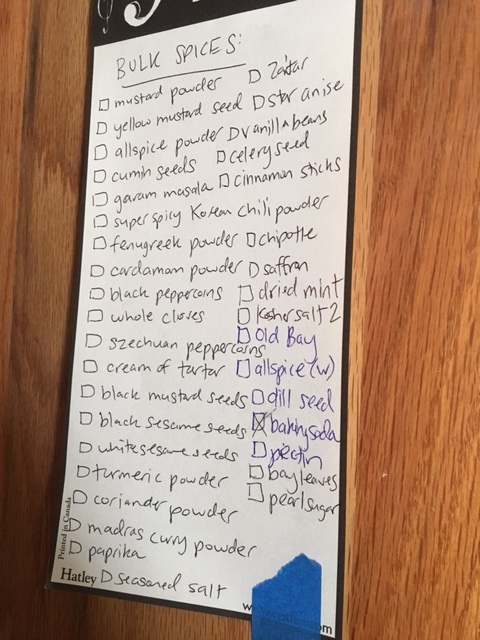 BULK SPICES:
mustard powder
yellow mustard seed
allspice powder
cumin seeds
garam masala
super spicy Korean chili powder
fenugreek powder
cardamam powder
black peppercorns
whole cloves
szechuan peppercorns
cream of tartar
black mustard seeds
black sesame seeds
white sesame seeds
turmeric powder
coriander powder
madras curry powder
paprika
seasoned salt
Za'atar
star anise
vanilla beans
celery seed
cinnamon sticks
chipotle
saffron
dried mint
Kosher salt 2
Old Bay
allspice (w)
dill seed
baking soda
pectin
bay leaves
pearl sugar
Printed in Canada
Hatley